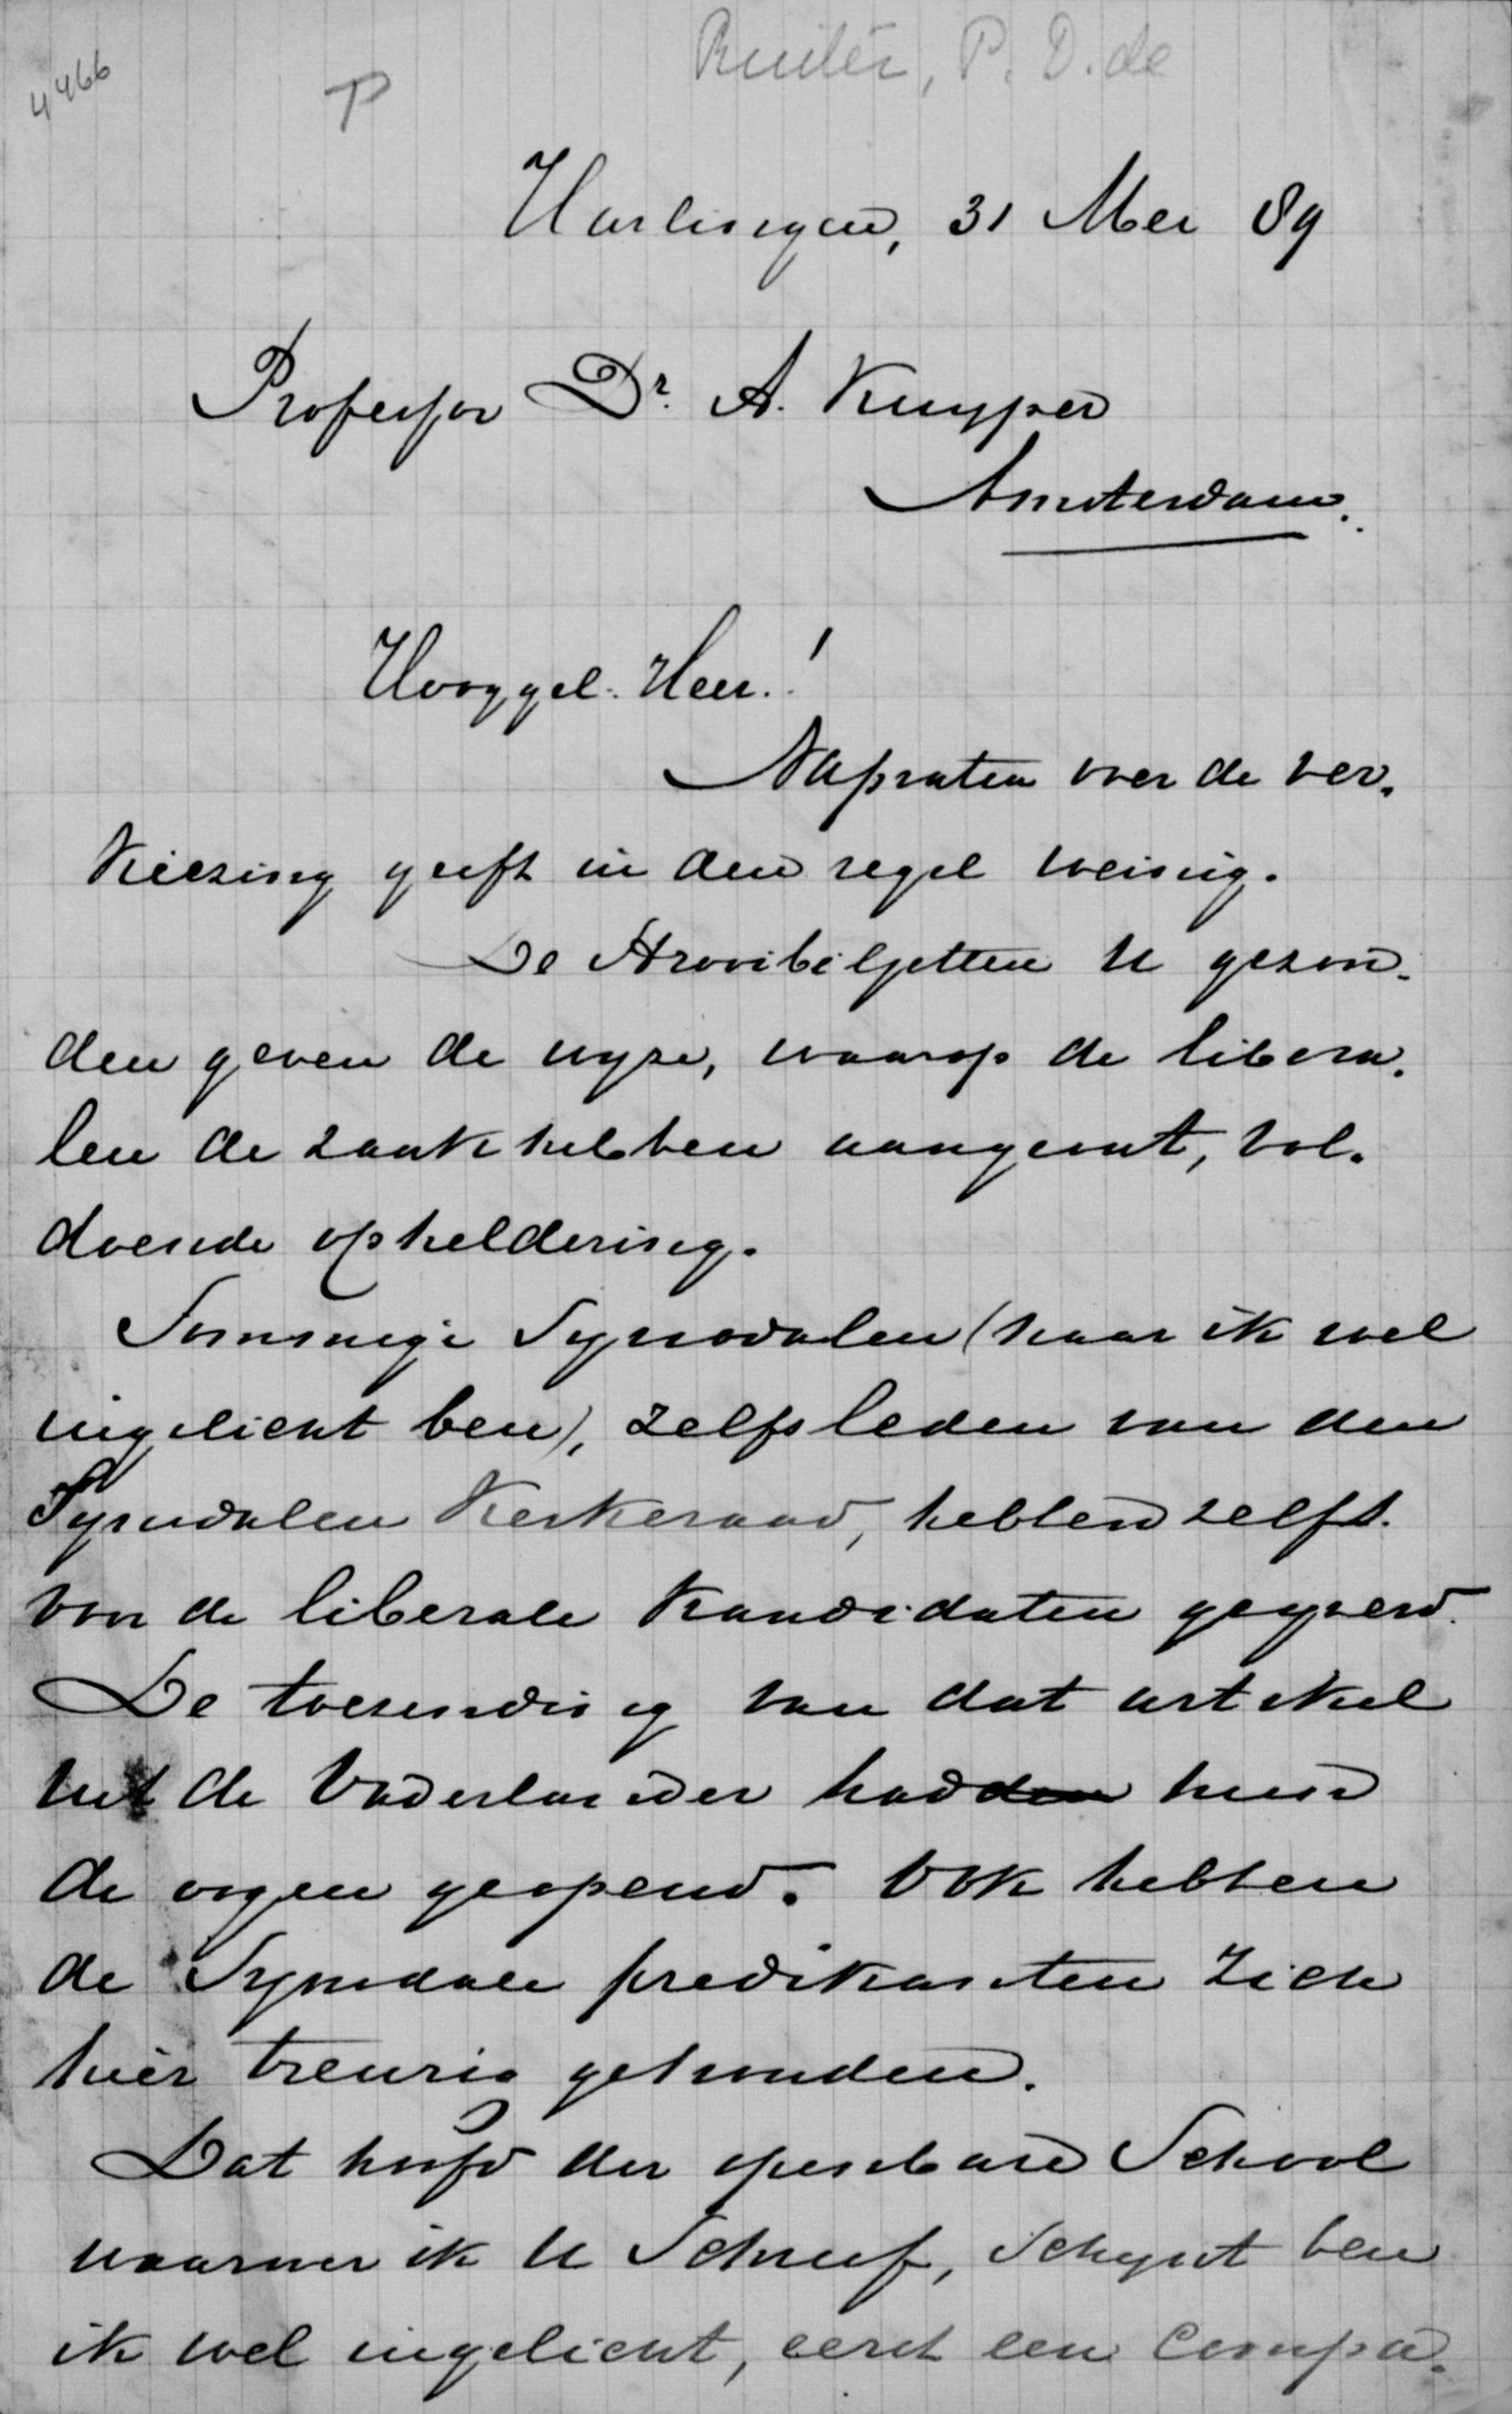 Ruiter, P. D. de
4466
P
Harlingen, 31 Mei 89
Professor Dr. A. Kuyper
Amsterdam.
Hooggel. Heer!
Napraten over de ver.
kiezing geeft in den regel weinig.
De strooibiljetten U gezon.
den geven de wyze, waarop de libera.
len de zaak hebben aangevat, vol.
doende opheldering.
Sommige Synodalen (naar ik wel
ingelicht ben), zelfs leden van den
Synodalen Kerkeraad, hebben zelfs.
voor de liberale Kandidaten geyverd.
De toezending van dat artikel
uit de Vaderlander hadden hun
de oogen geopend. Ook hebben
de Synodale predikanten zich
hier treurig gehouden.
Dat hoofd der openbare School
waarover ik U Schreef, Schynt ben
ik wel ingelicht, eerst een Compa.